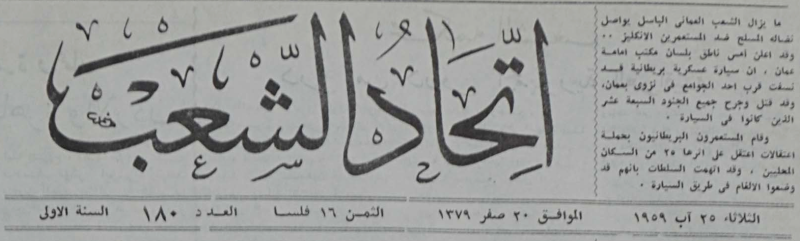 ما يزال الشعب العماني الباسل يواصل
نضاله المسلح ضد المستعمرين الانكليز ٠٠
وقد اعلن امس ناطق بلسان مكتب امامة
عمان ، ان سيارة عسكرية بريطانية قد
نسفت قرب احد الجوامع في نزوى بعمان،
وقد قتل وجرح جميع الجنود السبعة عشر
الذين كانوا في السيارة ٠
وقام المستعمرون البريطانيون بحملة
اعتقالات اعتقل على اثرها ٢٥ من السكان
المحليين ، وقد اتهمت السلطات بانهم قد
وضعوا الالغام في طريق السيارة ٠
اتحاد الشعب
الثلاثاء ٢٥ آب ١٩٥٩ الموافق ٢٠ صفر ١٣٧٩ الثمن ١٦ فلسا العدد ١٨٠ السنة الاولى